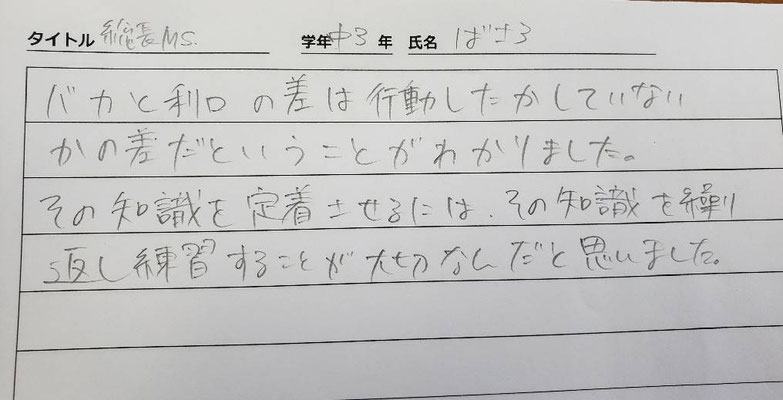 タイトル 総長MS. 学年 中3 年 氏名 ばさろ
バカと利口の差は行動したかしていない
かの差だということがわかりました。
その知識を定着させるには、その知識を繰り
返し練習することが大切なんだと思いました。